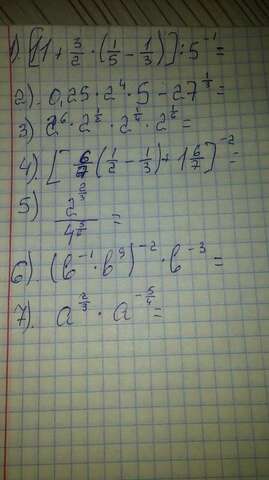 1). [11 + 3/2 · (1/5 − 1/3)] : 5^-1 =
2). 0,25 · 2^4 · 5 − 27^1/3 =
3) 2^6 · 2^1/8 · 2^1/4 · 2^1/6 =
4). [− 6/7 (1/2 − 1/3) + 1 6/7]^-2 =
5) 2^2/3 / 4^3/4 =
6). (b^-1 · b^9)^-2 · b^-3 =
7). a^2/3 · a^-5/4 =